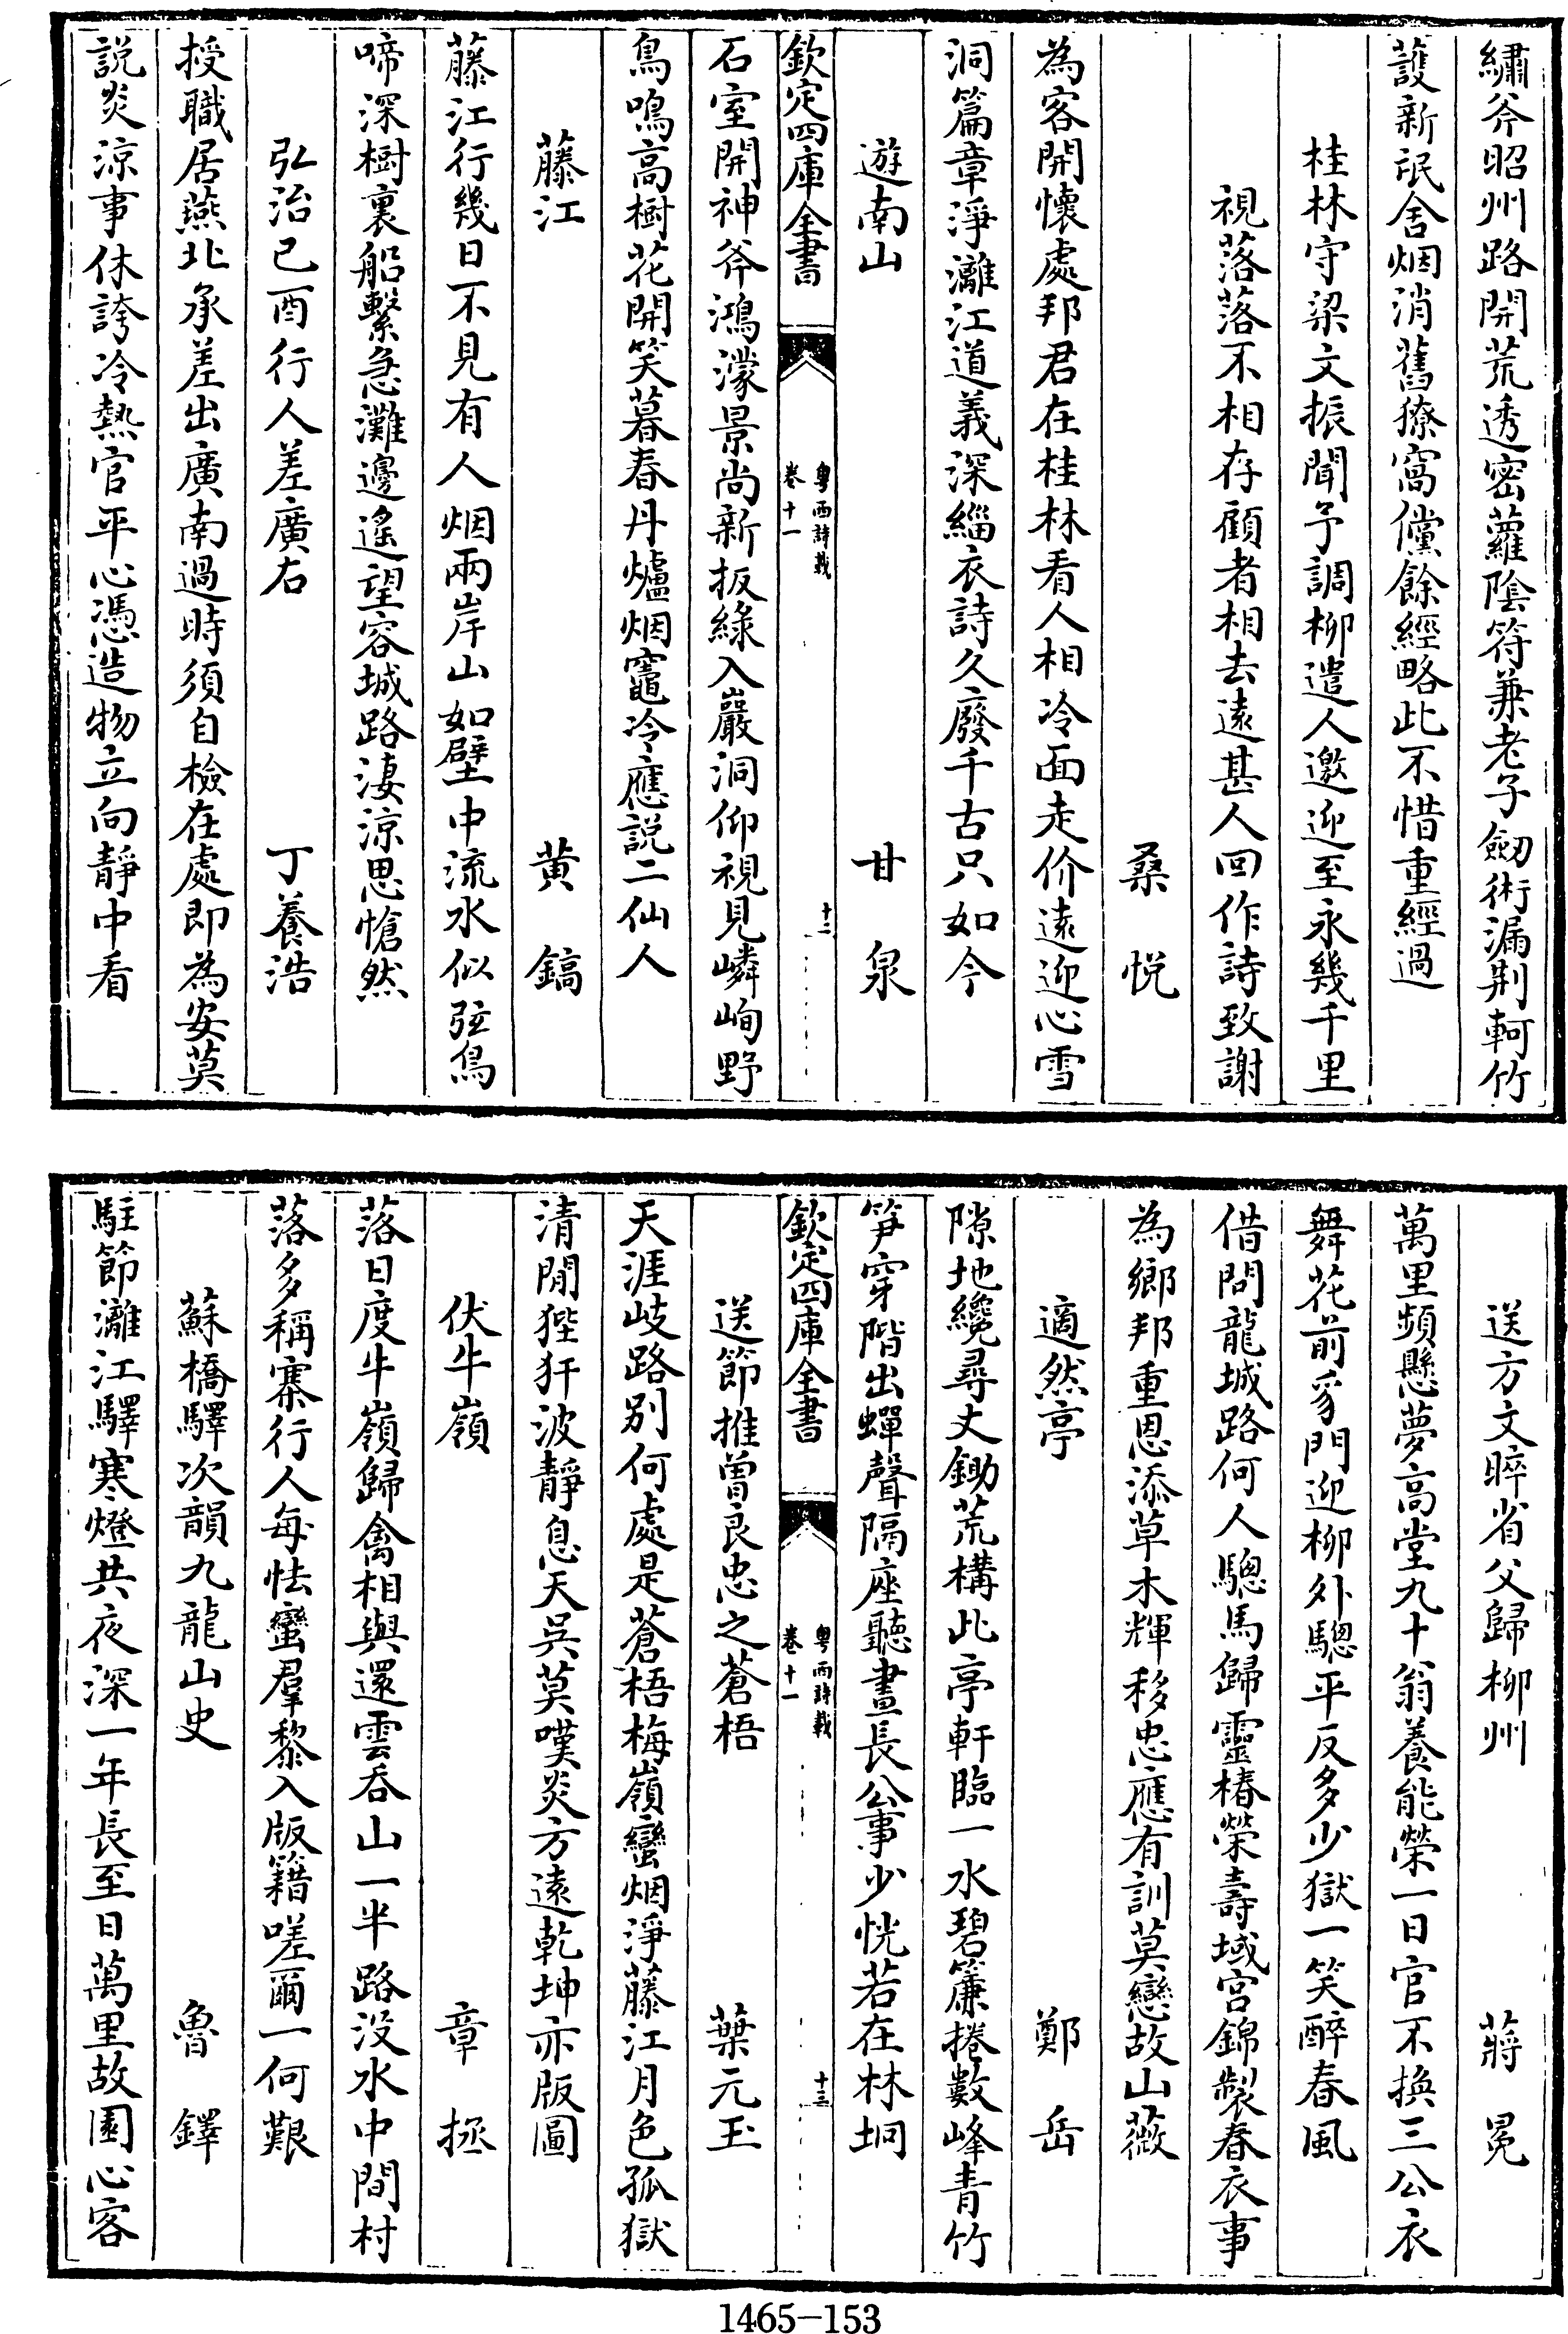 繡斧昭州路開荒透密蘿陰符兼老子劒術漏荆軻竹
䕶新氓舍烟消舊獠窩儻餘經略此不惜重經過
桂林守梁文振聞予調柳遣人邀迎至永幾千里
視落落不相存顧者相去遠甚人回作詩致謝
桑悅
為客開懷處邦君在桂林看人相冷面走价遠迎心雪
洞篇章淨灕江道義深緇衣詩久廢千古只如今
遊南山　甘泉
欽定四庫全書　粤西詩載 卷十一　十二
石室開神斧鴻濛景尚新扳緣入巖洞仰視見嶙峋野
鳥鳴高樹花開笑暮春丹爐烟竈冷應説二仙人
藤江　黄鎬
藤江行幾日不見有人烟兩岸山如壁中流水似弦鳥
啼深樹裏船繫急灘邊遙望容城路淒涼思愴然
弘治己酉行人差廣右　丁養浩
授職居燕北承差出廣南過時須自檢在處即為安莫
説炎涼事休誇冷熱官平心憑造物立向靜中看
送方文晬省父歸柳州　蔣冕
萬里頻懸夢高堂九十翁養能榮一日官不換三公衣
舞花前豸門迎柳外驄平反多少獄一笑醉春風
借問龍城路何人驄馬歸靈椿榮壽域宮錦製春衣事
為鄉邦重恩添草木輝移忠應有訓莫戀故山薇
適然亭　鄭岳
隙地纔尋丈鋤荒構此亭軒臨一水碧簾捲數峰青竹
笋穿階出蟬聲隔座聽晝長公事少恍若在林坰
欽定四庫全書　粤西詩載 卷十一　十三
送節推曾良忠之蒼梧　葉元玉
天涯岐路別何處是蒼梧梅嶺蠻烟淨藤江月色孤獄
清閒狴犴波靜息天吳莫嘆炎方遠乾坤亦版圖
伏牛嶺　章拯
落日度牛嶺歸禽相與還雲吞山一半路没水中間村
落多稱寨行人每怯蠻羣黎入版籍嗟爾一何艱
蘇橋驛次韻九龍山史　魯鐸
駐節灕江驛寒燈共夜深一年長至日萬里故園心客
1465-153